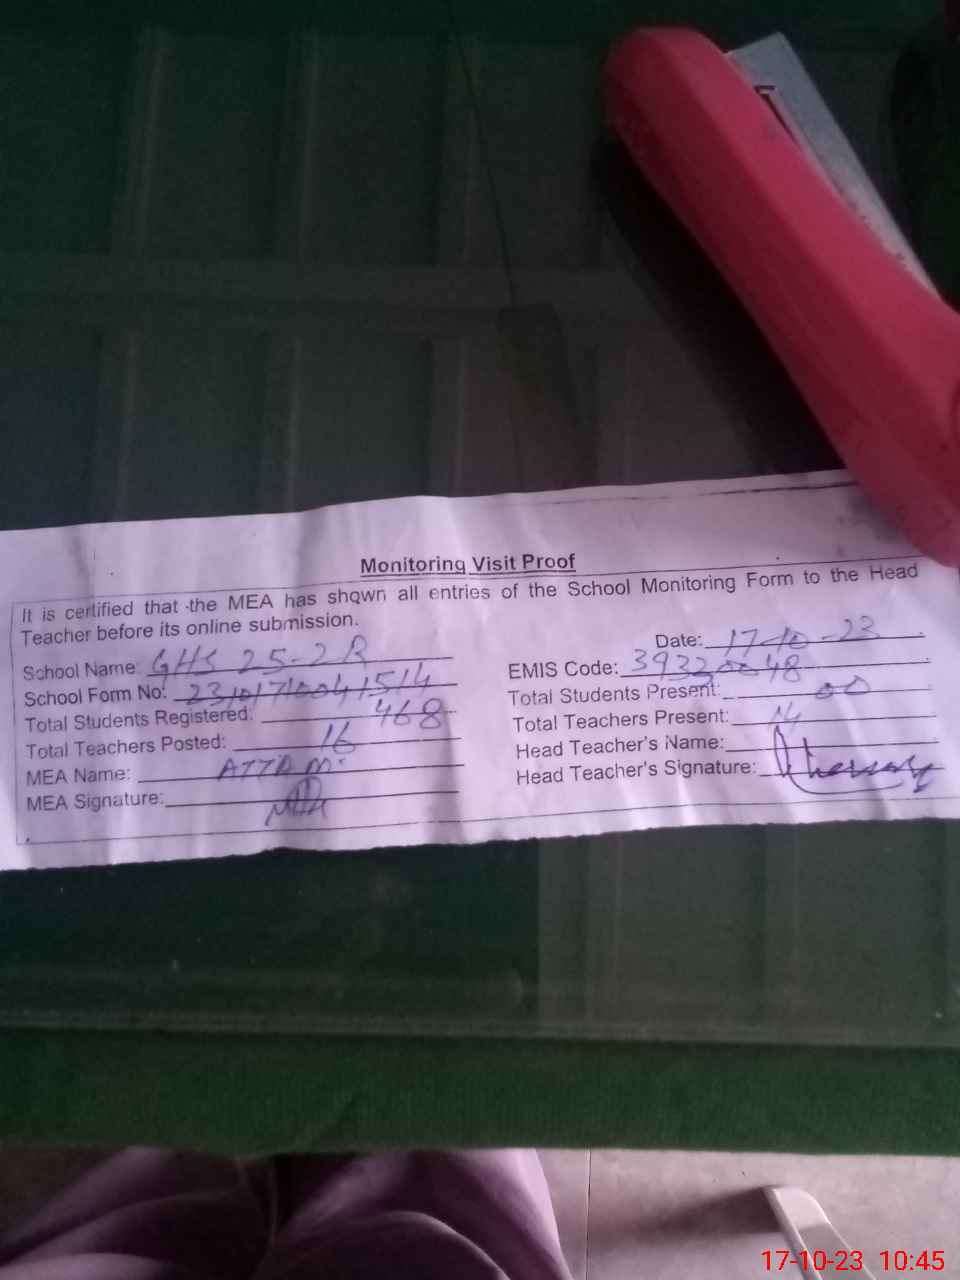 Monitoring Visit Proof
It is certified that the MEA has shown all entries of the School Monitoring Form to the Head
Teacher before its online submission.
Date: 17-10-23
School Name: GHS 25-2R
EMIS Code: 39320048
School Form No:
Total Students Present: 00
Total Students Registered: 468
Total Teachers Present: 14
Total Teachers Posted: 16
Head Teacher's Name:
MEA Name: ATTA M.
Head Teacher's Signature:
MEA Signature:
17-10-23 10:45